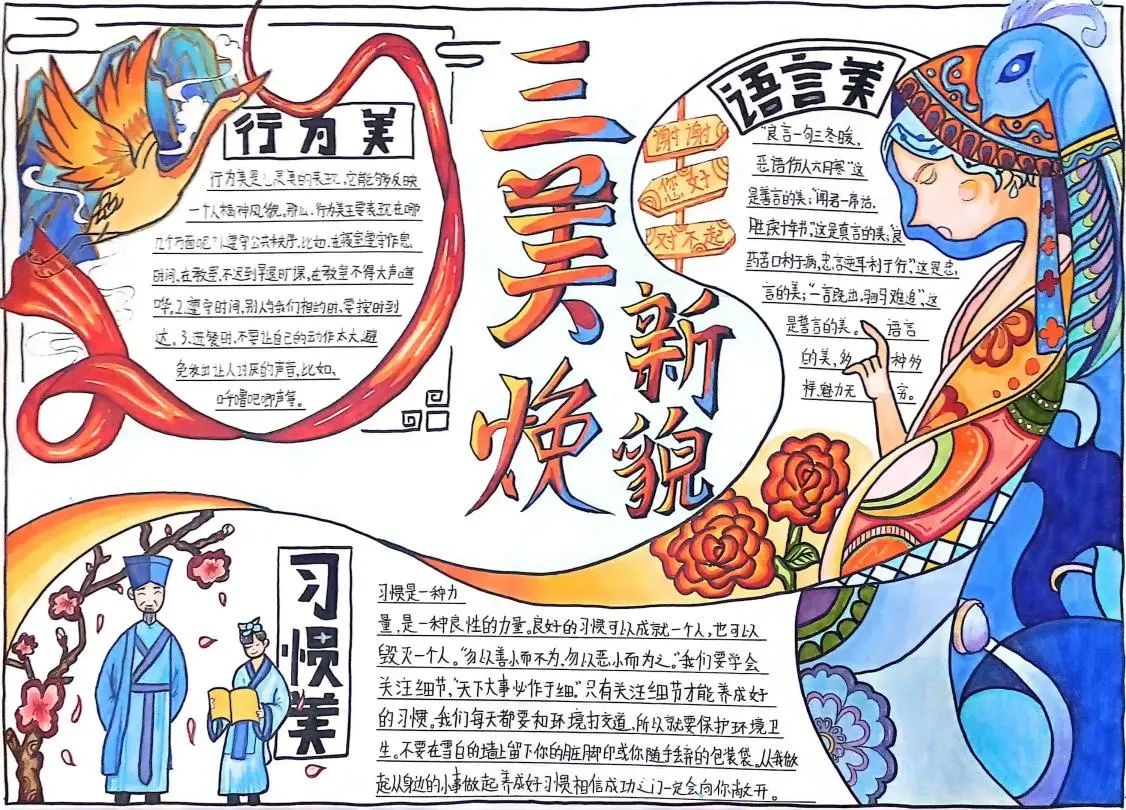 三美焕
新貌
行为美
行为美是心灵美的表现,它能够反映
一个人精神风貌。那么,行为美主要表现在哪
几个方面呢?1.遵守公共秩序,比如,在寝室遵守作息
时间,在教室,不迟到早退旷课,在教室不得大声喧
哗,2.遵守时间,别人与我们相约时,要按时到
达。3.进餐时,不要让自己的动作太大,避
免发出让人讨厌的声音,比如、
呼噜吧唧声等。
语言美
谢谢
您好
对不起
“良言一句三冬暖,
恶语伤人六月寒”这
是善言的美;“闻君一席话,
胜读十年书”,这是真言的美;“良
药苦口利于病,忠言逆耳利于行”,这是忠
言的美;“一言既出,驷马难追”,这
是誓言的美。 语言
的美,多 种多
样,魅力无 穷。
习惯美
习惯是一种力
量,是一种良性的力量。良好的习惯可以成就一个人,也可以
毁灭一个人。“勿以善小而不为,勿以恶小而为之。”我们要学会
关注细节,“天下大事必作于细。”只有关注细节才能养成好
的习惯。我们每天都要和环境打交道,所以就要保护环境卫
生。不要在雪白的墙上留下你的脏脚印或你随手丢弃的包装袋。从我做
起从身边的小事做起养成好习惯相信成功之门一定会向你敞开。